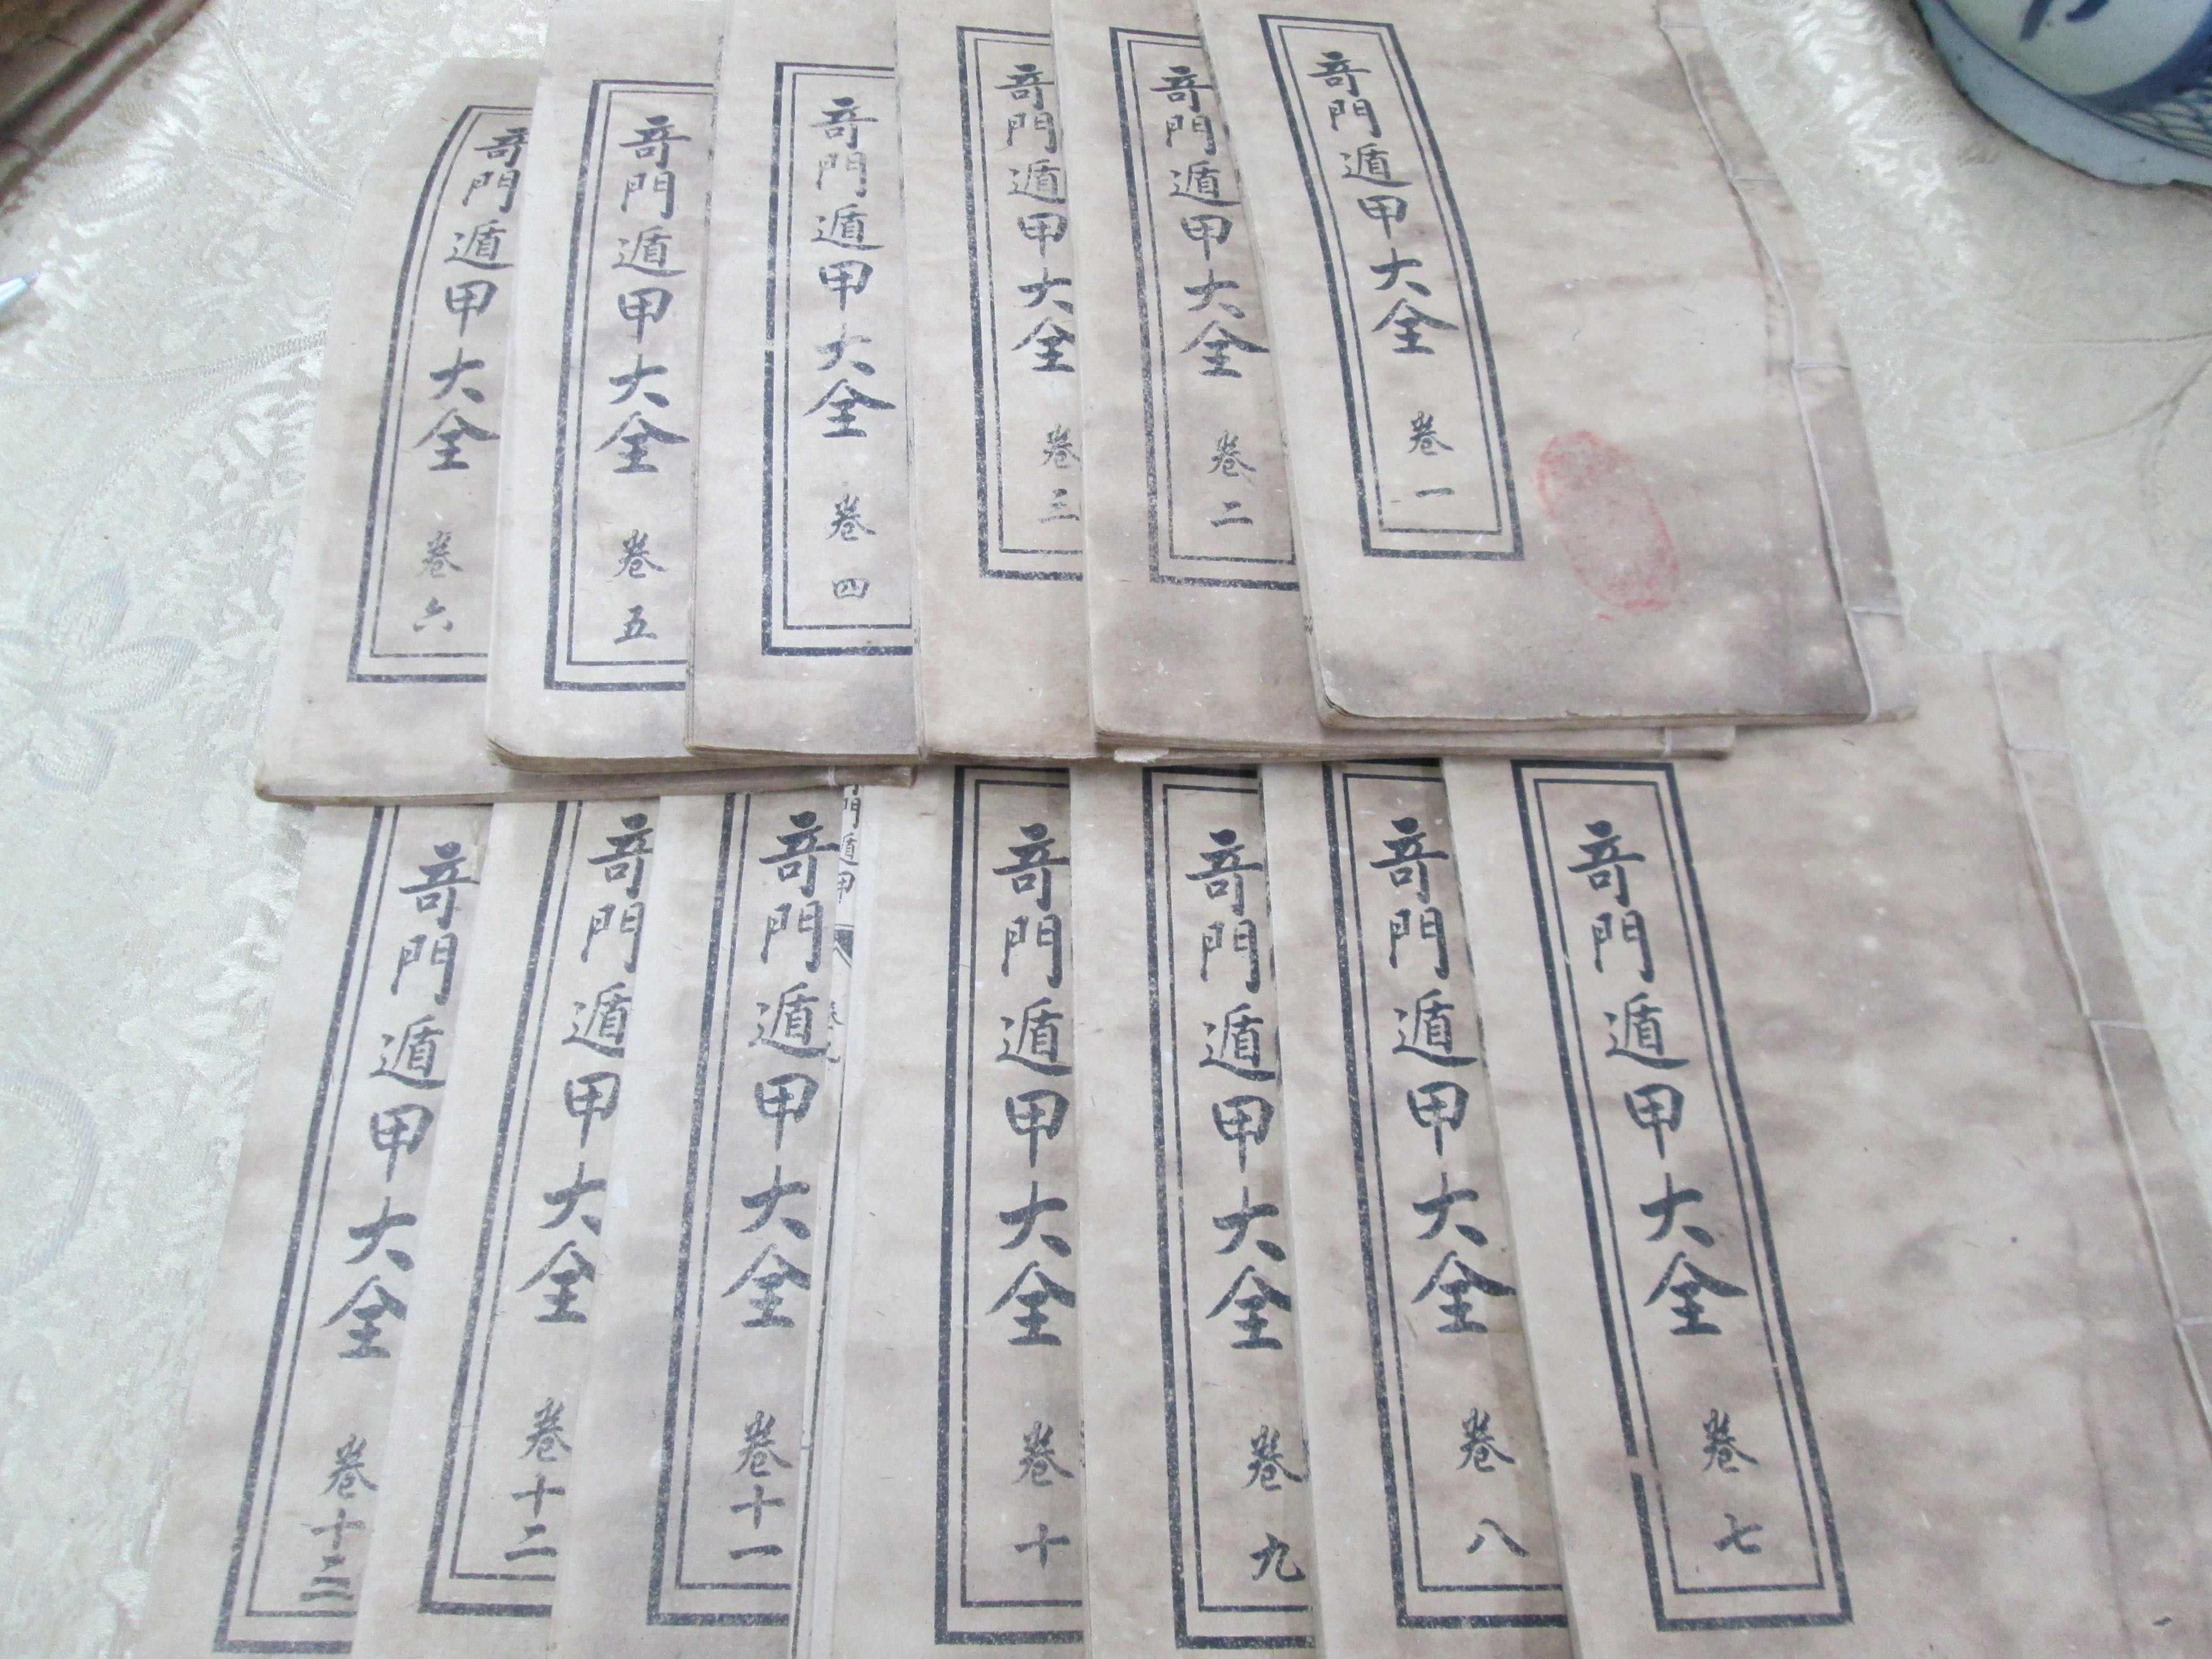 奇門遁甲大全 卷一
奇門遁甲大全 卷二
奇門遁甲大全 卷三
奇門遁甲大全 卷四
奇門遁甲大全 卷五
奇門遁甲大全 卷六
奇門遁甲大全 卷七
奇門遁甲大全 卷八
奇門遁甲大全 卷九
奇門遁甲大全 卷十
門遁甲
奇門遁甲大全 卷十一
奇門遁甲大全 卷十二
奇門遁甲大全 卷十三